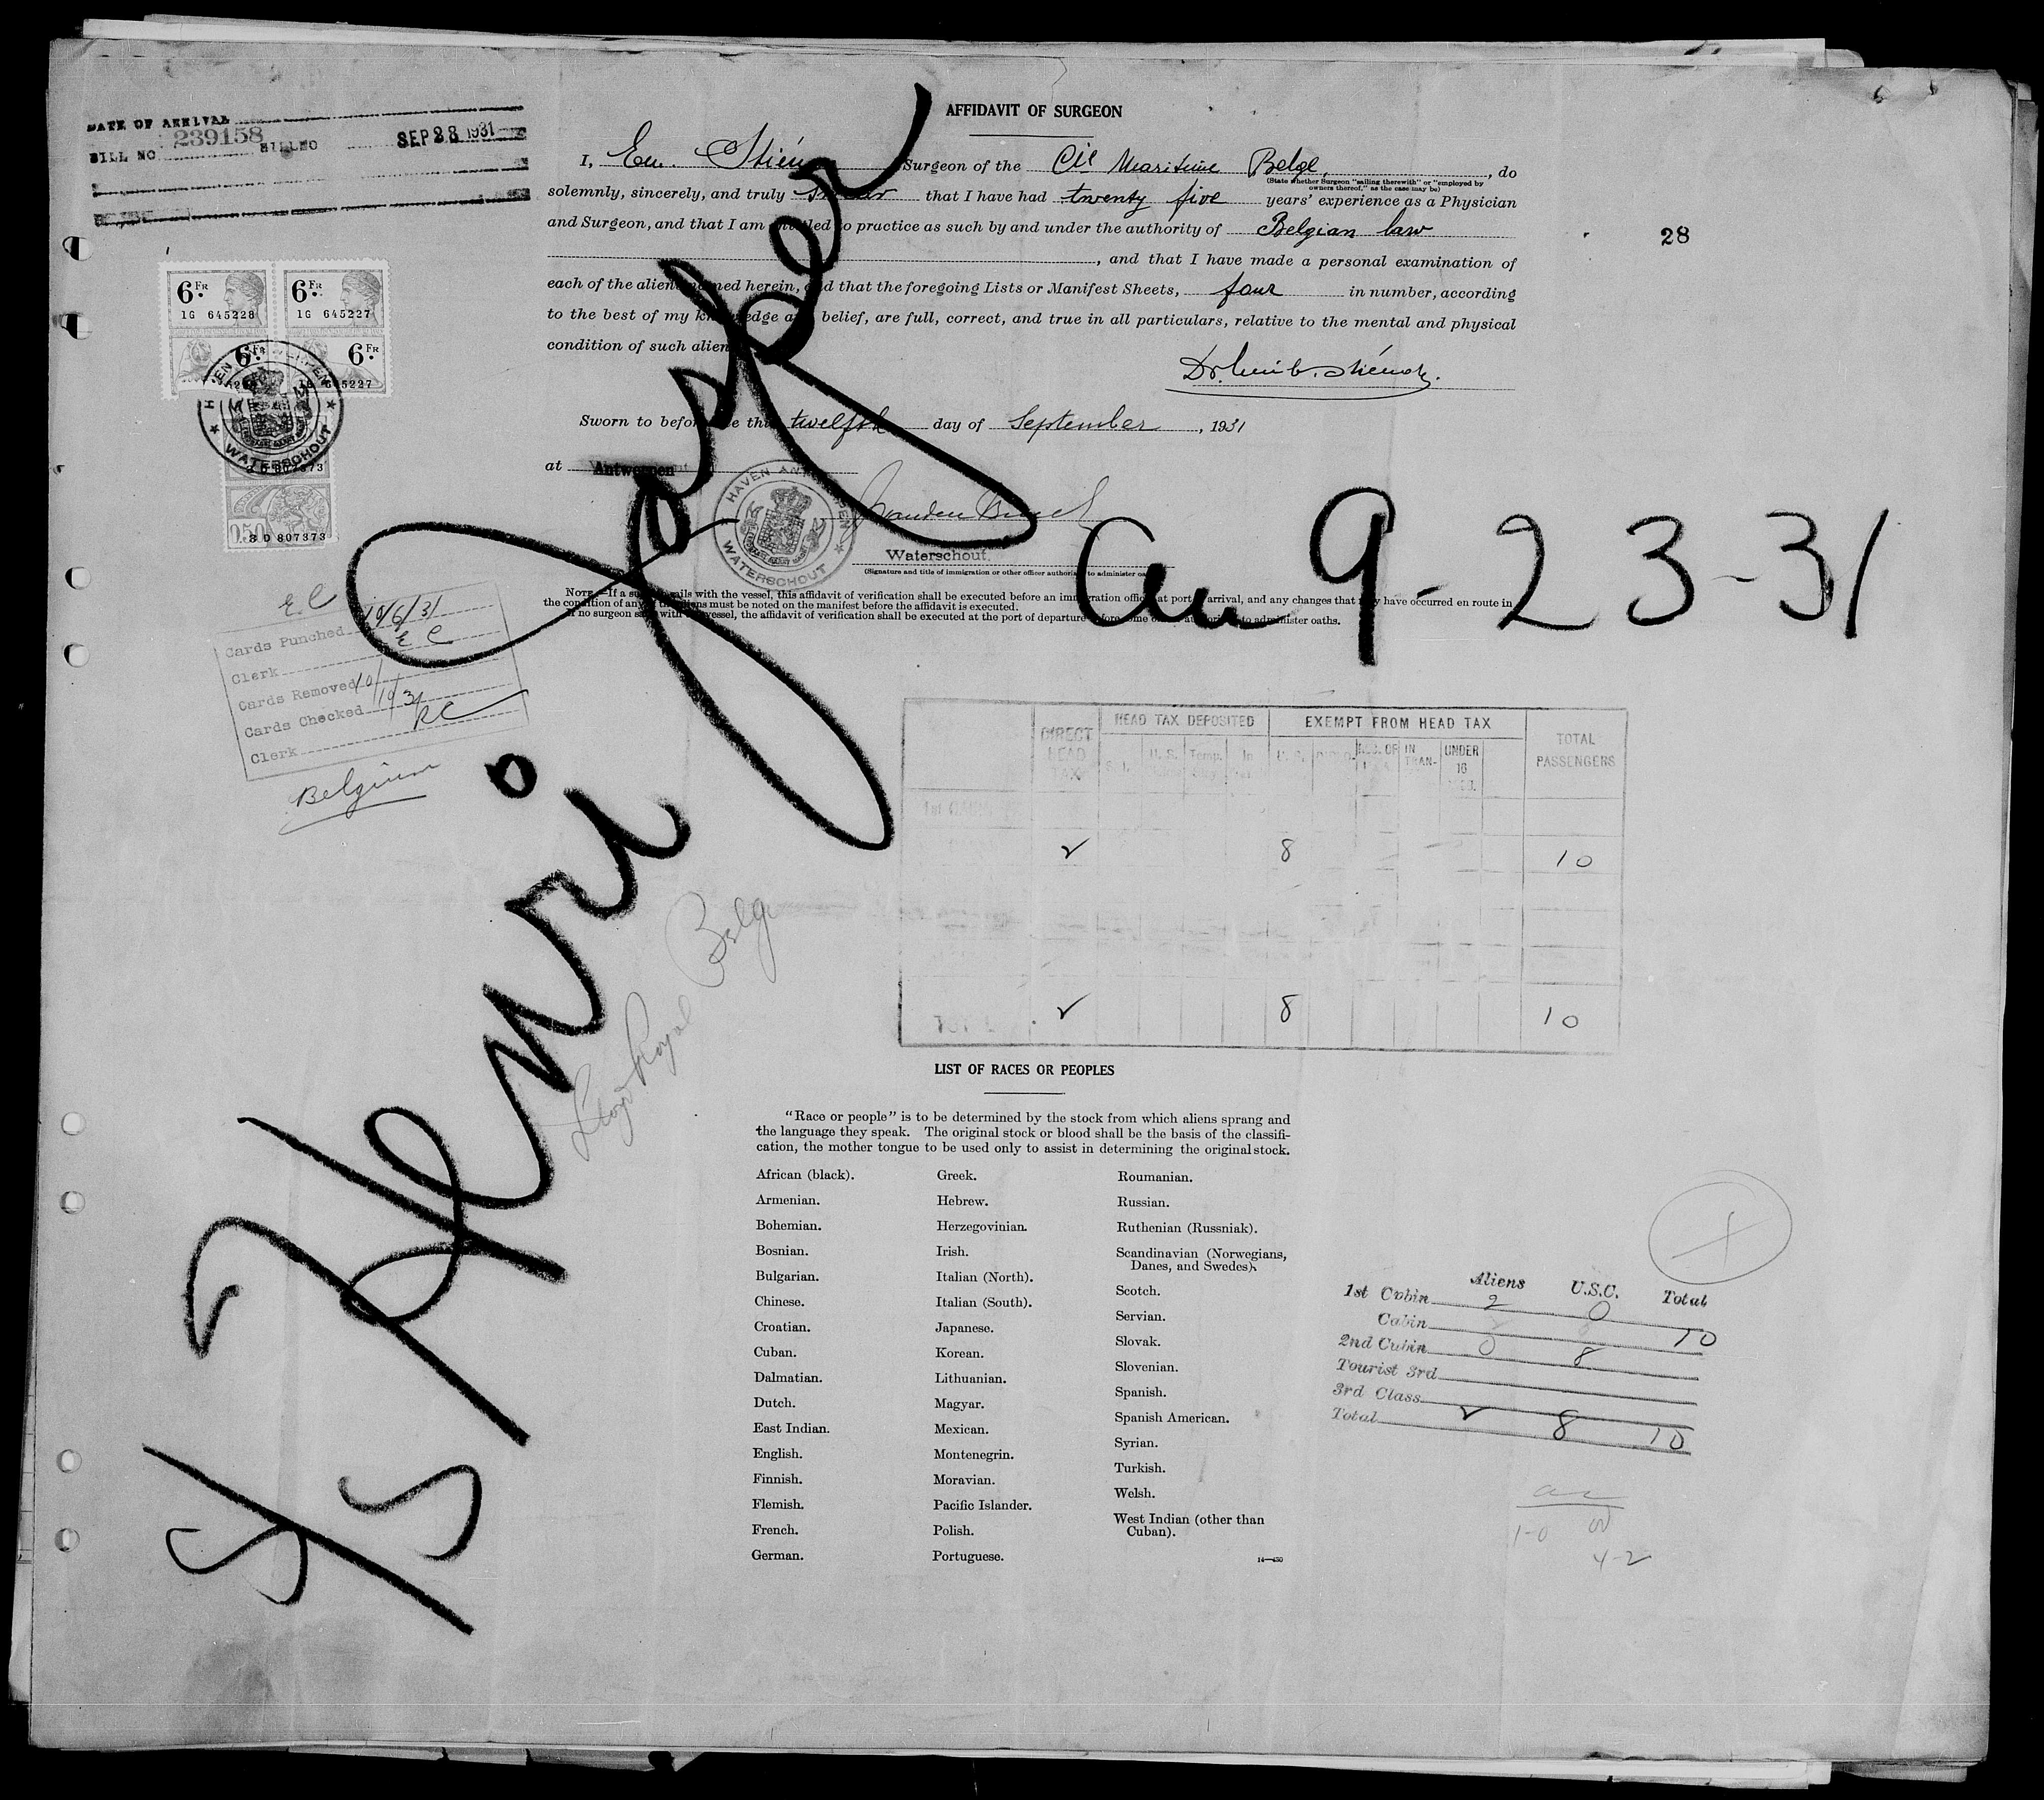 DATE OF ARRIVAL
BILL NO 239158 BILL NO SEP 23 1931
AFFIDAVIT OF SURGEON
I, Em. Surgeon of the Cie Maritime Belge, do
(State whether Surgeon "sailing therewith" or "employed by
owners thereof," as the case may be)
solemnly, sincerely, and truly swear that I have had twenty five years' experience as a Physician
and Surgeon, and that I am entitled to practice as such by and under the authority of Belgian law
, and that I have made a personal examination of
each of the aliens named herein, and that the foregoing Lists or Manifest Sheets, four in number, according
to the best of my knowledge and belief, are full, correct, and true in all particulars, relative to the mental and physical
condition of such aliens
28
6 Fr. 6 Fr.
1G 645228 1G 645227
6 Fr. 6 Fr.
1G 645227
HAVEN ANTWERPEN
WATERSCHOUT
807373
0.50
807373
Sworn to before me this twelfth day of September, 1931
at Antwerpen
HAVEN ANTWERPEN
WATERSCHOUT
Waterschout.
(Signature and title of immigration or other officer authorized to administer oaths)
NOTE.—If a surgeon sails with the vessel, this affidavit of verification shall be executed before an immigration officer at port of arrival, and any changes that may have occurred en route in
the condition of any of the aliens must be noted on the manifest before the affidavit is executed.
If no surgeon sails with the vessel, the affidavit of verification shall be executed at the port of departure before some officer authorized to administer oaths.
S/S Henri Jaspar
9-23-31
E C
Cards Punched 10/6/31
Clerk E C
Cards Removed 10/
Cards Checked
Clerk RC
Belgium
Lloyd Royal Belg
DIRECT HEAD TAX HEAD TAX DEPOSITED EXEMPT FROM HEAD TAX TOTAL PASSENGERS
U.S. Temp. In U.S. IN TRAN- UNDER 16
1st
2 8 10
2 8 10
LIST OF RACES OR PEOPLES
"Race or people" is to be determined by the stock from which aliens sprang and
the language they speak. The original stock or blood shall be the basis of the classifi-
cation, the mother tongue to be used only to assist in determining the original stock.
African (black). Greek. Roumanian.
Armenian. Hebrew. Russian.
Bohemian. Herzegovinian. Ruthenian (Russniak).
Bosnian. Irish. Scandinavian (Norwegians,
Danes, and Swedes).
Bulgarian. Italian (North). Scotch.
Chinese. Italian (South). Servian.
Croatian. Japanese. Slovak.
Cuban. Korean. Slovenian.
Dalmatian. Lithuanian. Spanish.
Dutch. Magyar. Spanish American.
East Indian. Mexican. Syrian.
English. Montenegrin. Turkish.
Finnish. Moravian. Welsh.
Flemish. Pacific Islander. West Indian (other than
Cuban).
French. Polish.
German. Portuguese.
14—430
Aliens U.S.C. Total
1st Cabin 2 0
Cabin 10
2nd Cabin 0 8
Tourist 3rd
3rd Class
Total 2 8 10
1-0
4-2